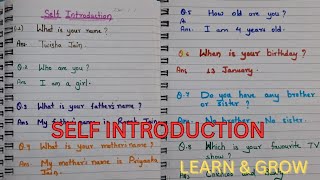 Self Introduction
Q.1) What is your name ?
Ans: Twisha Jain
Q.2 Who are you ?
Ans: I am a girl.
Q.3 What is your father's name ?
Ans My father's name is Jain.
Q.4 What is your mother's name ?
Ans. My mother's name is Priyanka
Jain.
Q.5 How old are you ?
Ans: I am 4 years old.
Q.6 When is your birthday ?
Ans: 13 January.
Q.7 Do you have any brother
or sister ?
Ans: No brother No sister.
Q.8 Which is your favourite TV
show ?
SELF INTRODUCTION
LEARN & GROW